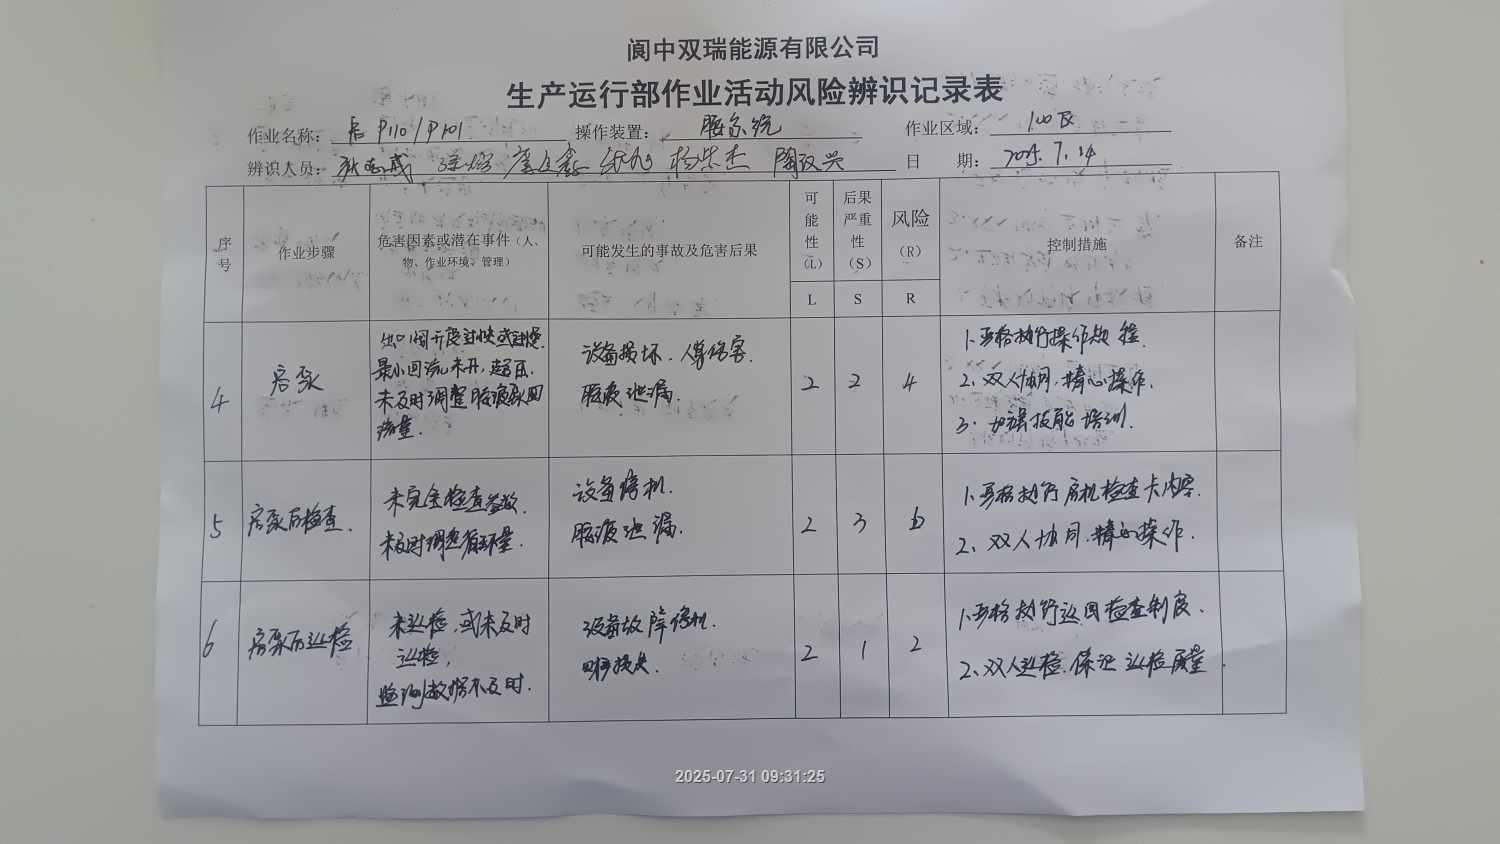 阆中双瑞能源有限公司
生产运行部作业活动风险辨识记录表
作业名称: 启 P110/P101 操作装置: 胺系统 作业区域: 100区
辨识人员: 杨荣杰 陶汉兴 日 期: 2025.7.14
序号 作业步骤 危害因素或潜在事件(人、物、作业环境、管理) 可能发生的事故及危害后果 可能性(L) 后果严重性(S) 风险(R) 控制措施 备注
L S R
4 启泵 2 2 4
出口阀开度过快或过慢.
最小回流未开,超压.
未及时调整胺液泵回
流量.
设备损坏.人身伤害.
胺液泄漏.
1.严格执行操作规程.
2.双人协同.精心操作.
3.加强技能培训.
5 启泵后检查. 2 3 6
未完全检查参数.
未及时调整循环量.
设备停机.
胺液泄漏.
1.严格执行启机检查卡内容.
2.双人协同.精心操作.
6 启泵后巡检 2 1 2
未巡检,或未及时
巡检,
监测数据不及时.
设备故障停机.
财产损失.
1.严格执行巡回检查制度.
2.双人巡检.保证巡检质量.
2025-07-31 09:31:25